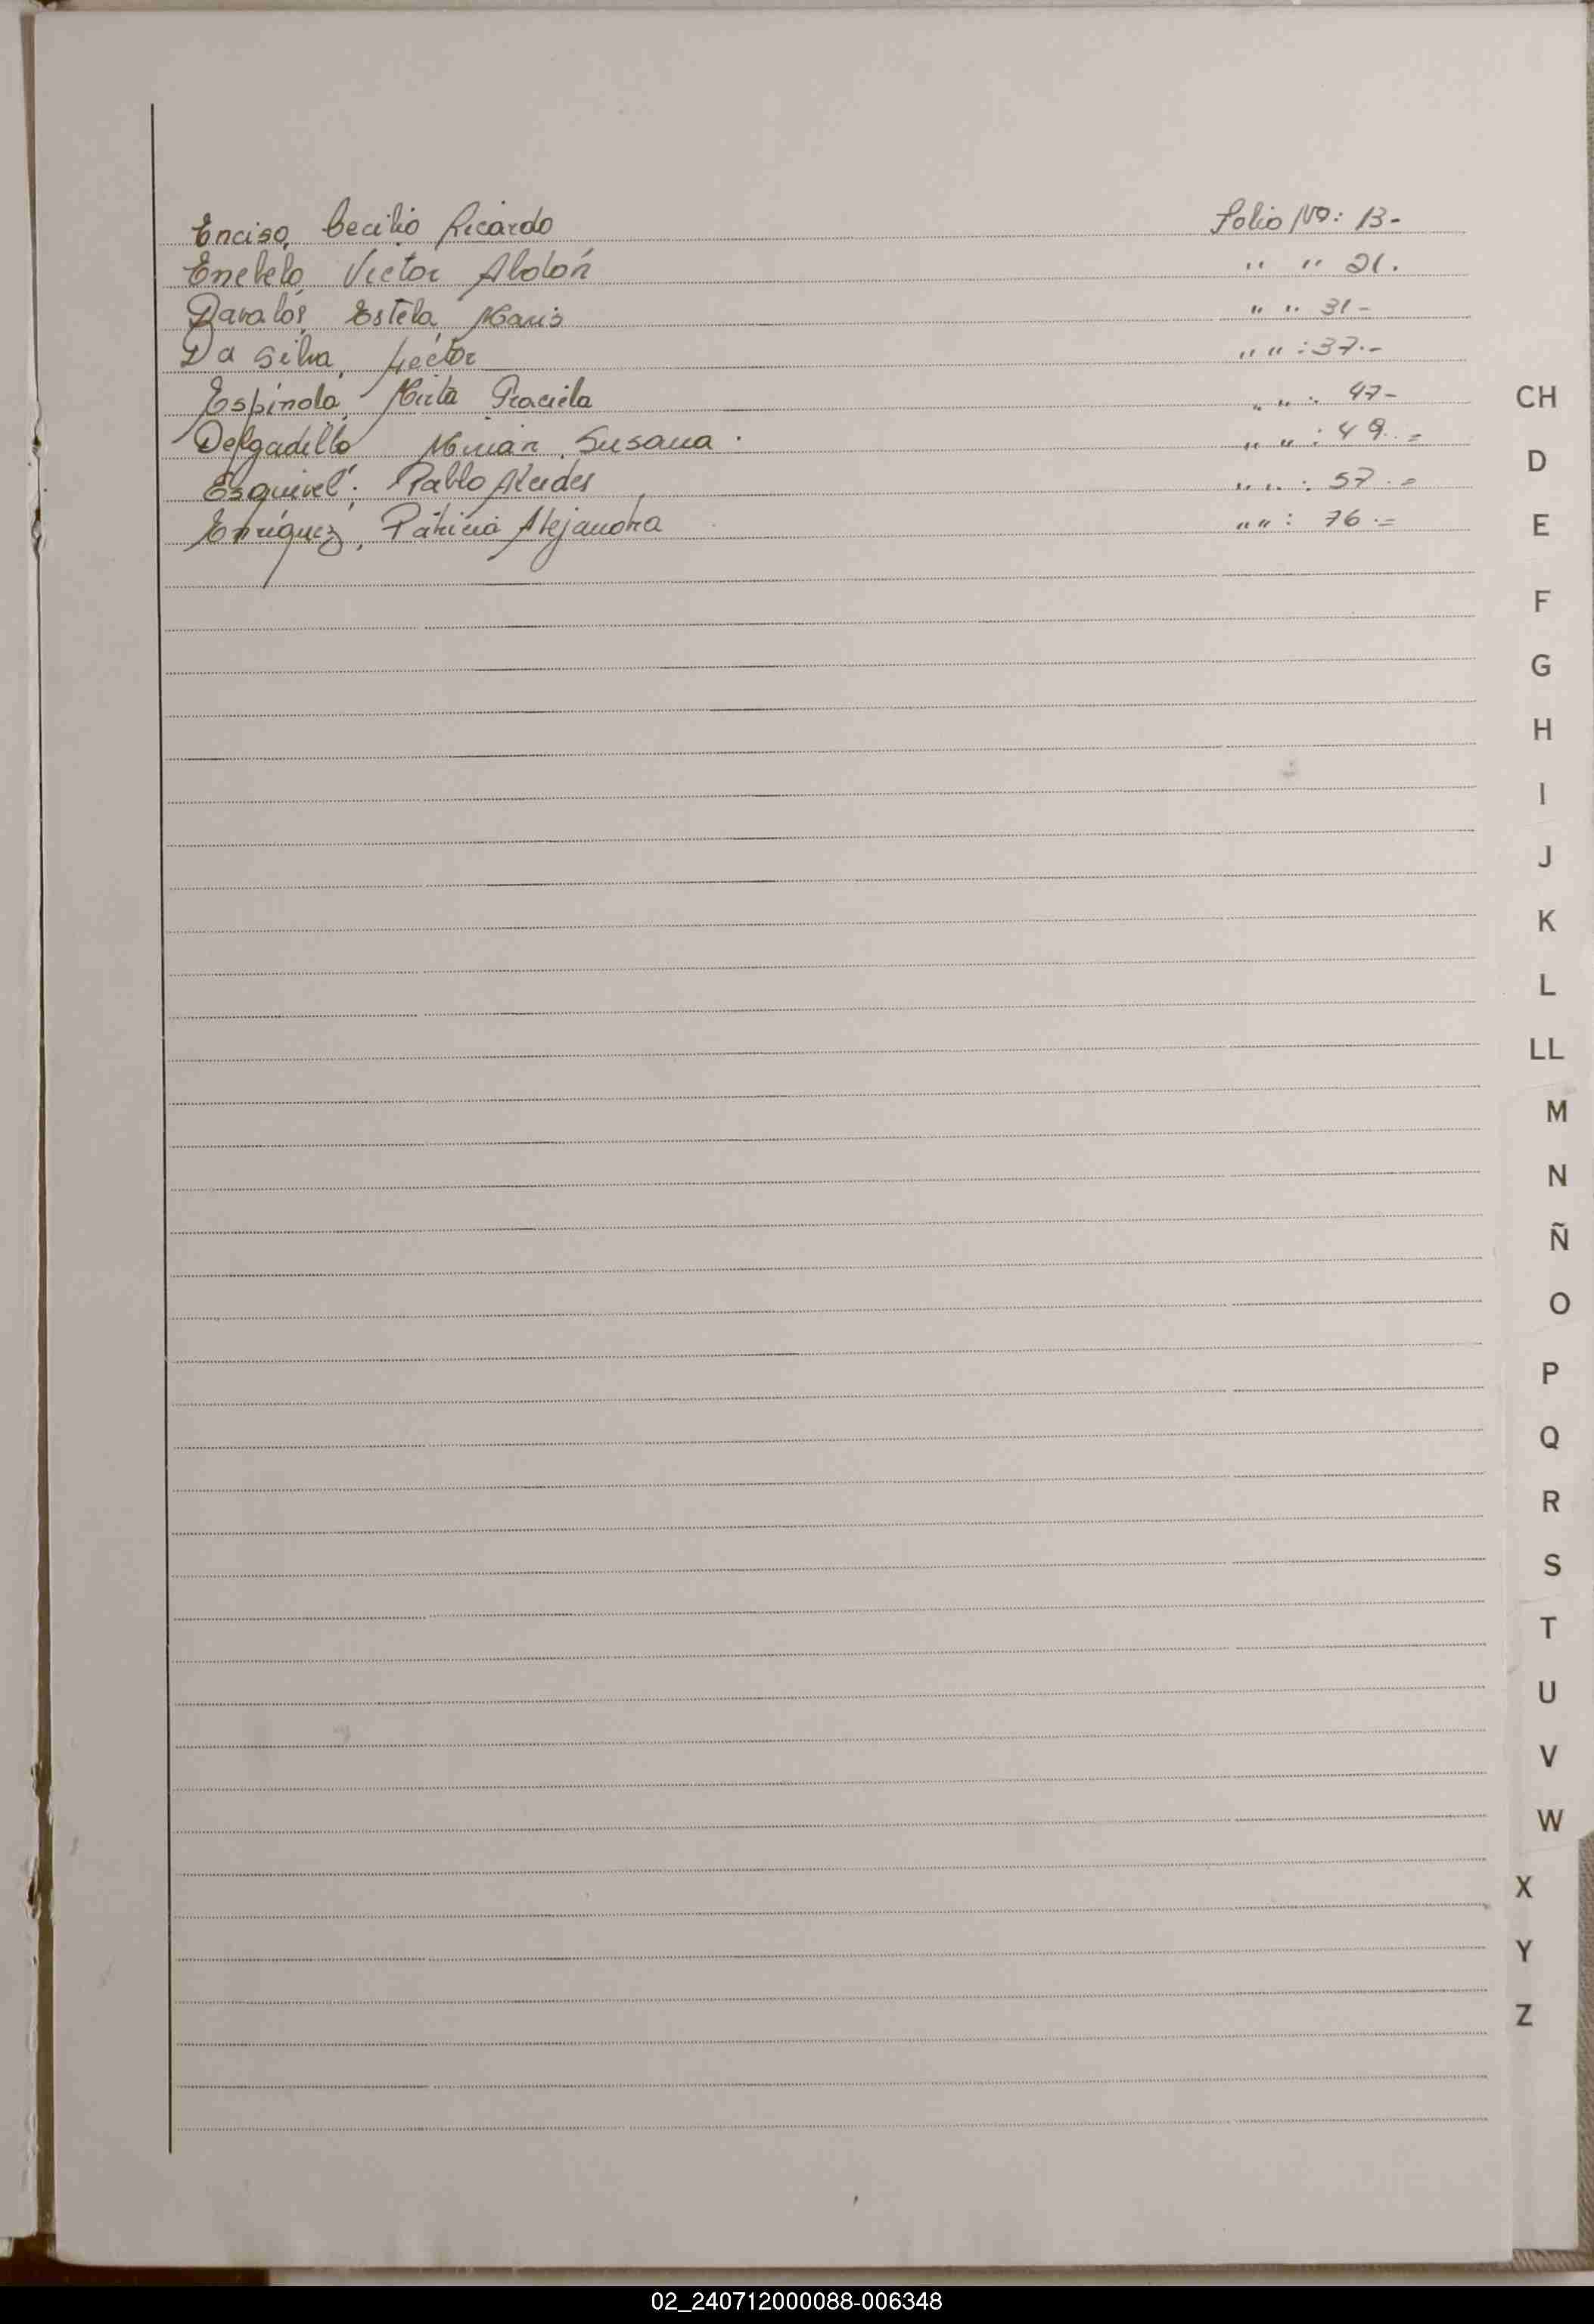 Enciso, Cecilio Ricardo Folio Nº: 13-
Victor Abdón " " 21.
Davalos, Estela Maris " " 31-
Da Silva, Hector " " : 37.-
Espínola, Mirta Graciela " " : 47-
Delgadillo Mirian Susana. " " : 49.=
Esquivel, Pablo Alcides " " : 57.=
Enriquez, Patricia Alejandra " " : 76.=
CH
D
E
F
G
H
I
J
K
L
LL
M
N
Ñ
O
P
Q
R
S
T
U
V
W
X
Y
Z
02_240712000088-006348